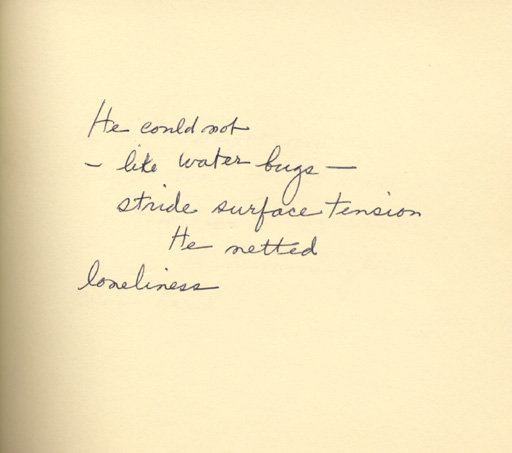 He could not
– like water bugs –
stride surface tension
He netted
loneliness